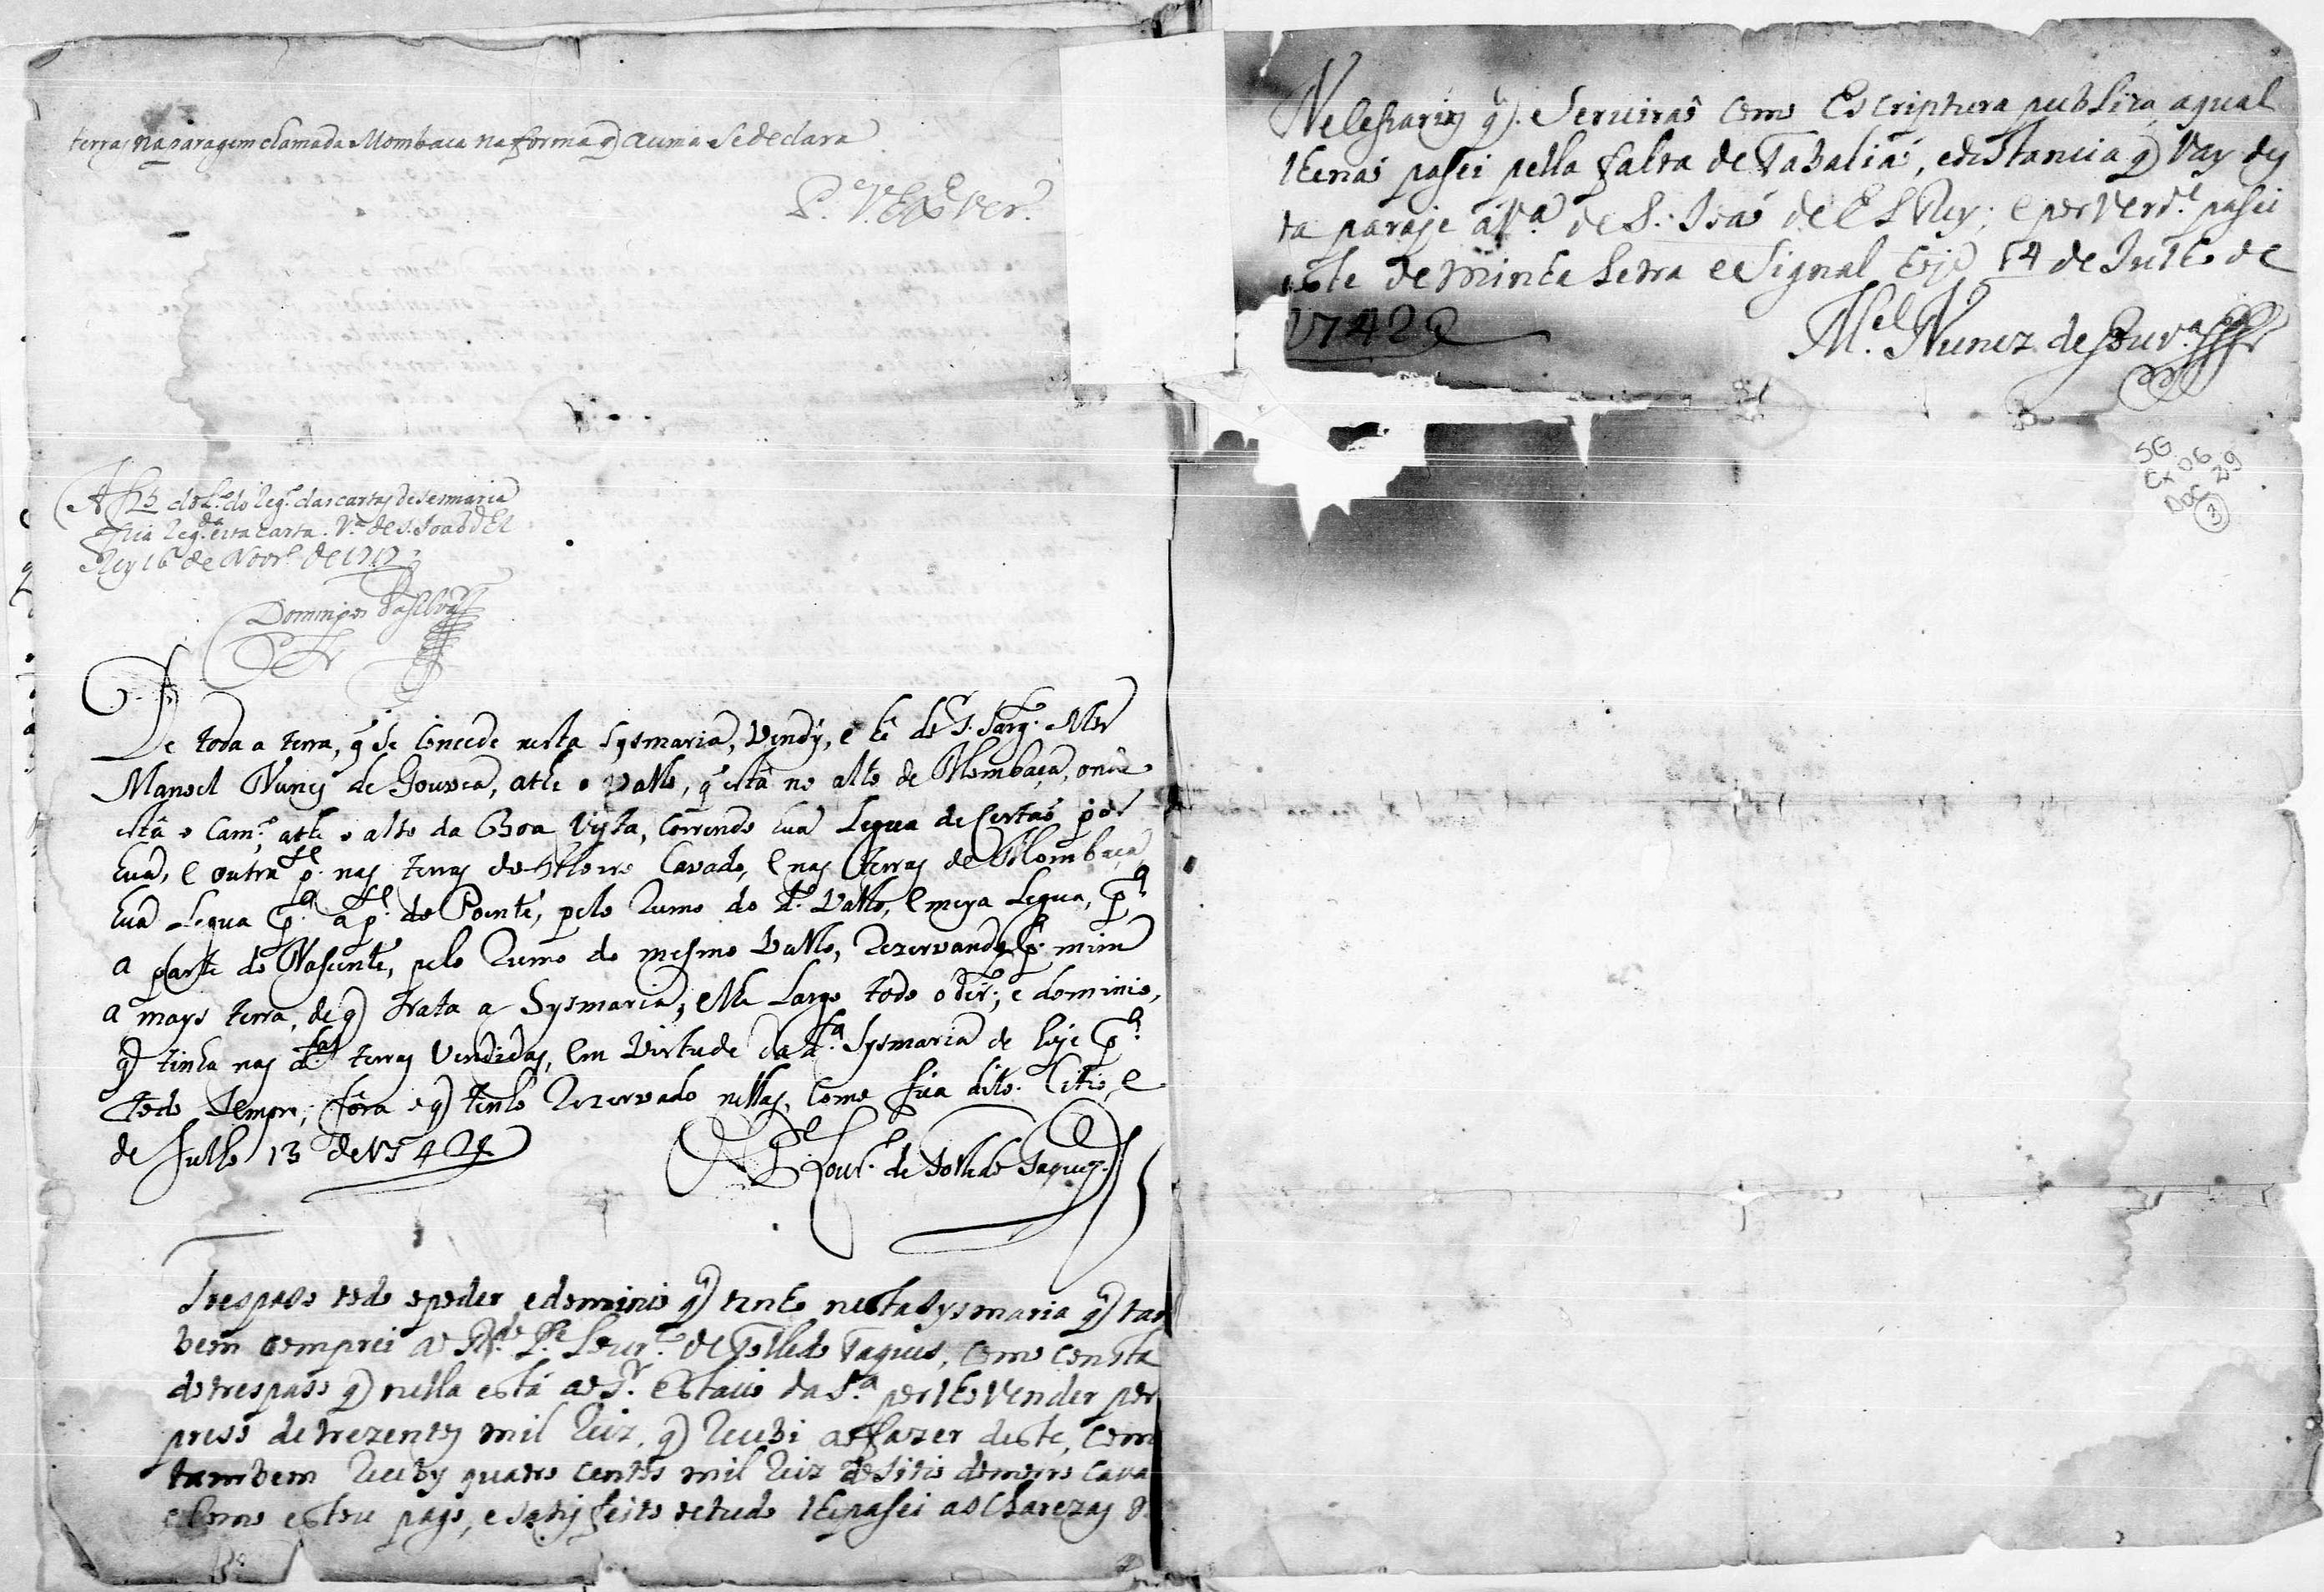 terras na paragem chamada Mombaca na forma q) acima se declara
P.ª V. Ex.ª ver.
A f 25 do L.º do reg.º das cartas de sesmaria
fica reg.da esta carta. V.ª de S. Joaõ d El
Rey 16 de Novr.º de 1717
Domingos da Silva
De toda a terra, q̃ se concede nesta Sysmaria, vendy, e hê do S. Sarg.to Mór
Manoel Nunes de Gouvea, athe o vallo, q̃ está no alto de Mombaça, onde
está o Cam.º, athe o alto da Boa Vysta, correndo hua Legua de Certaõ por
hua, e outra p.te nas terras do Morro Cavado, e nas terras de Mombaça
hua Legua p.ª a p.te do Poente, pelo Rumo do d.º Vallo, e meya Legua, p.ª
a parte do Nascente, pelo Rumo do mesmo Vallo, Rezervando p.ª mim
a mays terra, de q) trata a Sysmaria, e lhe Largo todo o dir.to, e dominio,
q) tinha nas d.tas terras vendidas, em virtude da d.ta Sysmaria de hoje p.ª
todo sempre, fóra o q) tenho Rezervado nellas, como fica dito. Citio, e
de Julho 13 de 1742
O P.e Lour.ço de Tolledo Taques
Trespaso todo o poder e dominio q) tinho nesta Sysmaria q) tam
bem comprei ao R.do P.e Lour.ço de Tolledo Taques, como consta
do trespaso q) nella está ao S.r Estacio da S.ª por lho vender por
preso de trezentos mil Reiz, q) Recebi ao fazer deste, como
tambem Receby quatro centos mil Reiz do sitio do morro cava
e como estou pago, e satisfeito de tudo lhe pasei as Clarezas
Nelesharias q). Serviraõ como Escriptura publica, a qual
lhe naõ pasei pella falta de Tabaliaõ, e distancia q) vay des
ta paraje á V.ª de S. Joaõ de El Rey; e por verd.e pasei
este de minha Letra e Signal hoje 14 de Julho de
1742
M.el Nunez de Gouv.ª
SG
Cx 06
Doc 29
3